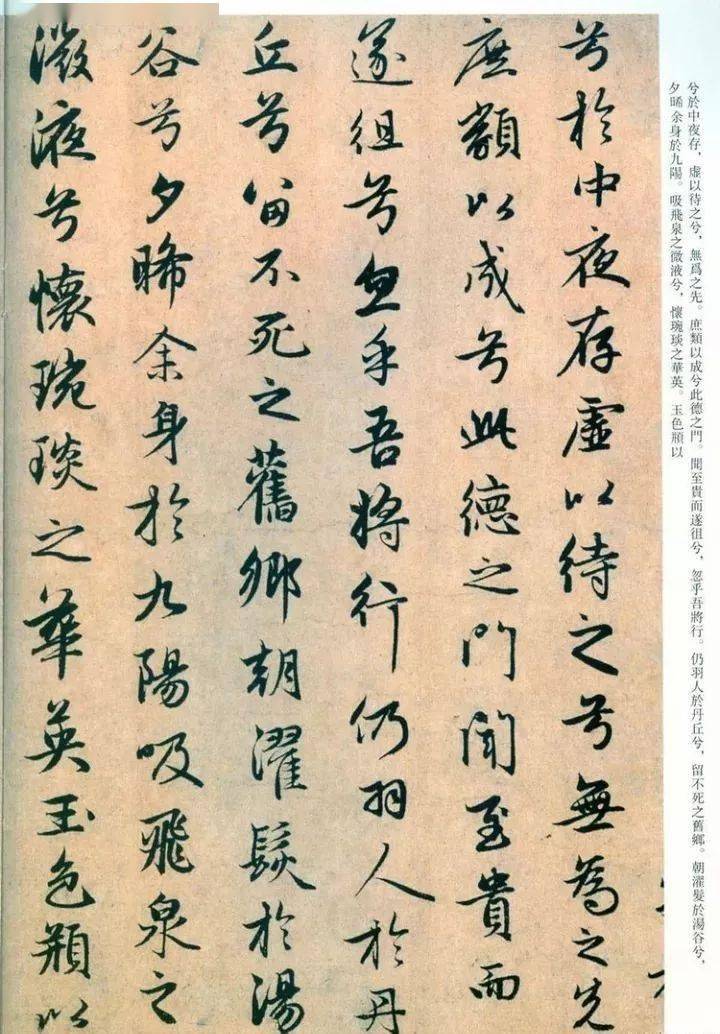 兮於中夜存，虛以待之兮，無爲之先。庶類以成兮此德之門。聞至貴而遂徂兮，忽乎吾將行。仍羽人於丹丘兮，留不死之舊鄉。朝濯髮於湯谷兮，
夕晞余身於九陽。吸飛泉之微液兮，懷琬琰之華英。玉色頩以
兮於中夜存虛以待之兮無為之先
庶類以成兮此德之門聞至貴而
遂徂兮忽乎吾將行仍羽人於丹
丘兮留不死之舊鄉朝濯髮於湯
谷兮夕晞余身於九陽吸飛泉之
微液兮懷琬琰之華英玉色頩以